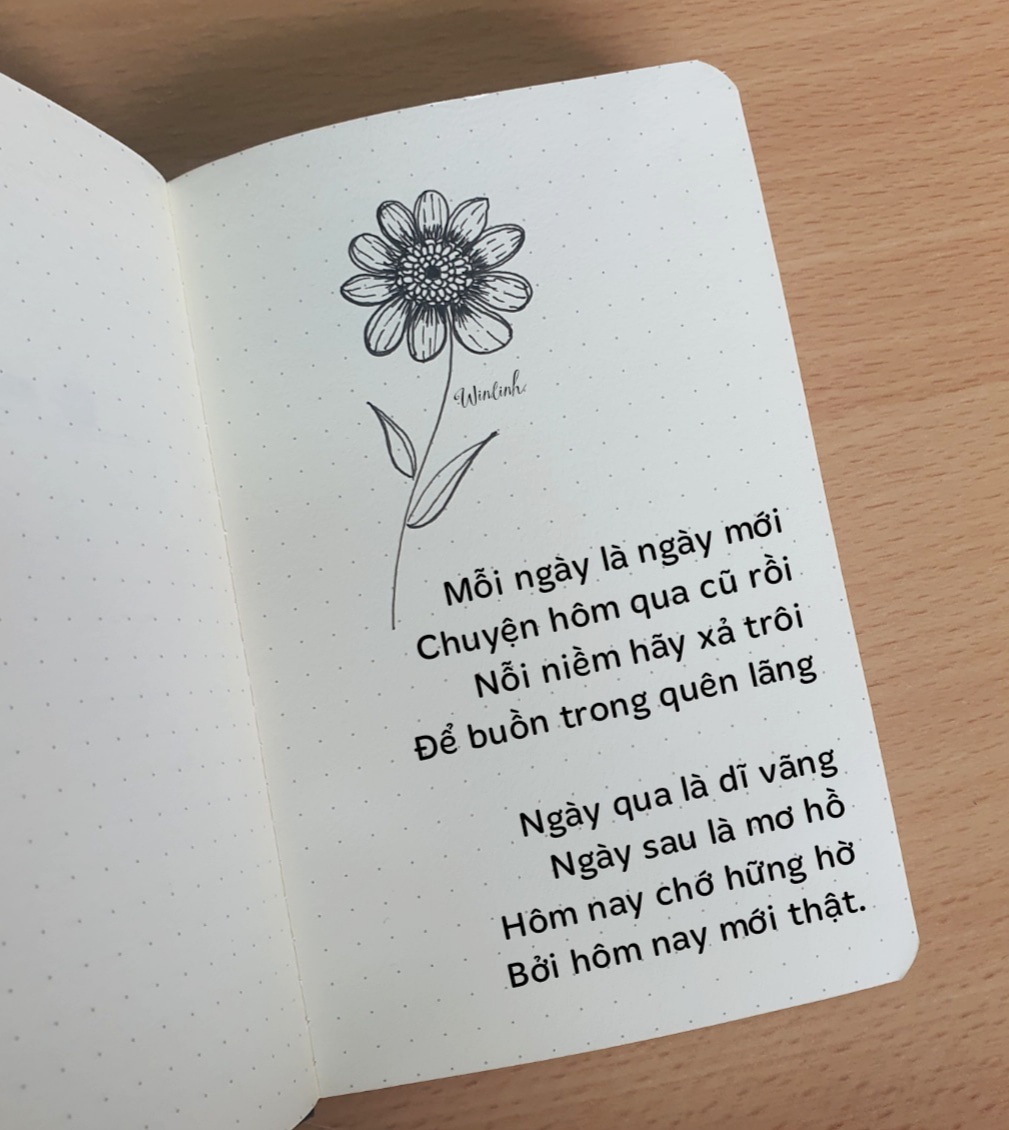 Winlinh.
Mỗi ngày là ngày mới
Chuyện hôm qua cũ rồi
Nỗi niềm hãy xả trôi
Để buồn trong quên lãng
Ngày qua là dĩ vãng
Ngày sau là mơ hồ
Hôm nay chớ hững hờ
Bởi hôm nay mới thật.